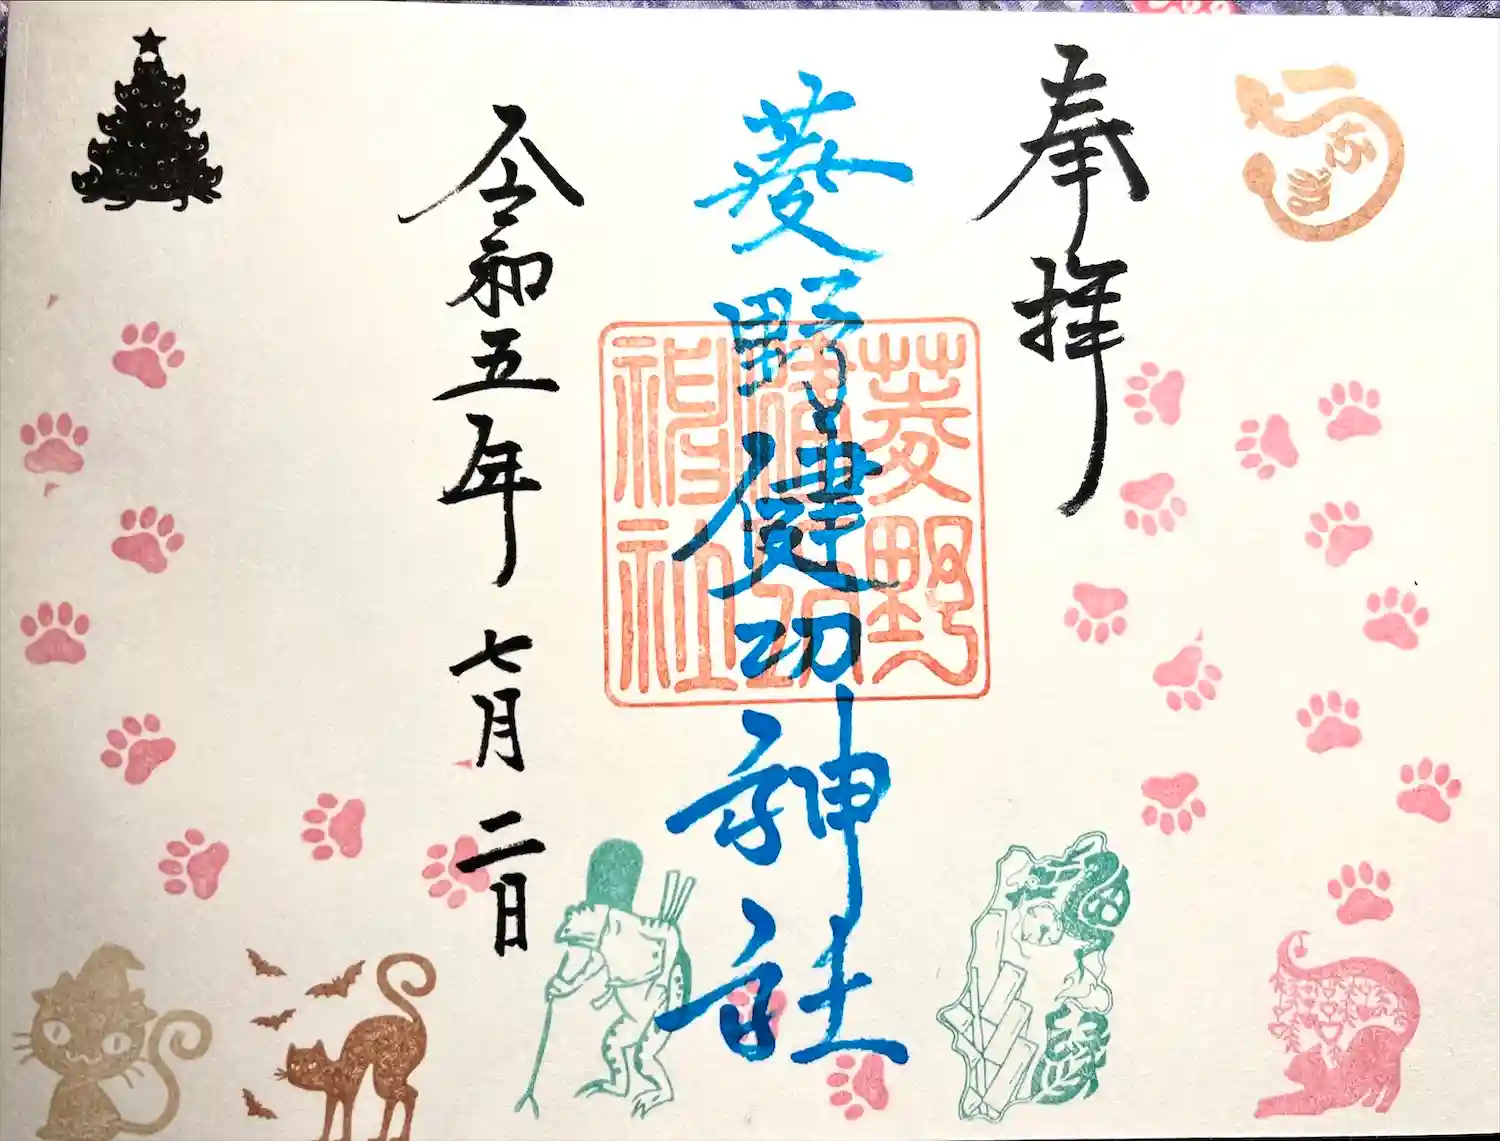 奉拝
菱野健功神社
菱野
健功
神社
令和五年 七月 二日